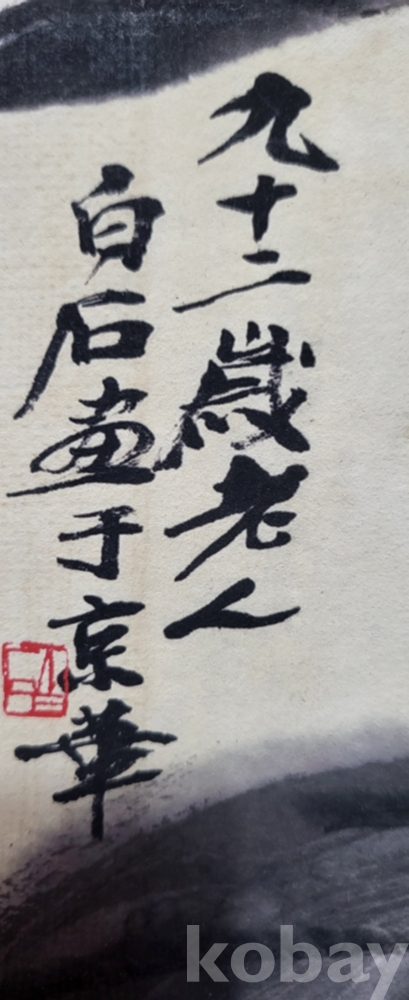 九十二歲老人
白石畫于京華
kobay